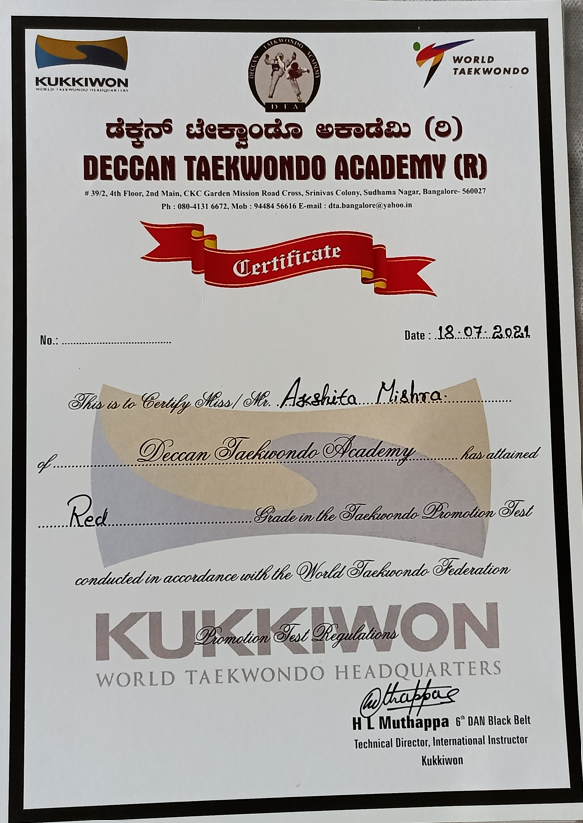 KUKKIWON
WORLD TAEKWONDO HEADQUARTERS
DECCAN TAEKWONDO ACADEMY
DTA
WORLD
TAEKWONDO
ಡೆಕ್ಕನ್ ಟೇಕ್ವಾಂಡೊ ಅಕಾಡೆಮಿ (ರಿ)
DECCAN TAEKWONDO ACADEMY (R)
# 39/2, 4th Floor, 2nd Main, CKC Garden Mission Road Cross, Srinivas Colony, Sudhama Nagar, Bangalore- 560027
Ph : 080-4131 6672, Mob : 94484 56616 E-mail : dta.bangalore@yahoo.in
Certificate
No.: ....................................
Date : 18.07.2021
This is to Certify Miss/ Mr. Akshita Mishra.
of Deccan Taekwondo Academy has attained
Red Grade in the Taekwondo Promotion Test
conducted in accordance with the World Taekwondo Federation
KUKKIWON
Promotion Test Regulations
WORLD TAEKWONDO HEADQUARTERS
Muthappa
H L Muthappa 6th DAN Black Belt
Technical Director, International Instructor
Kukkiwon